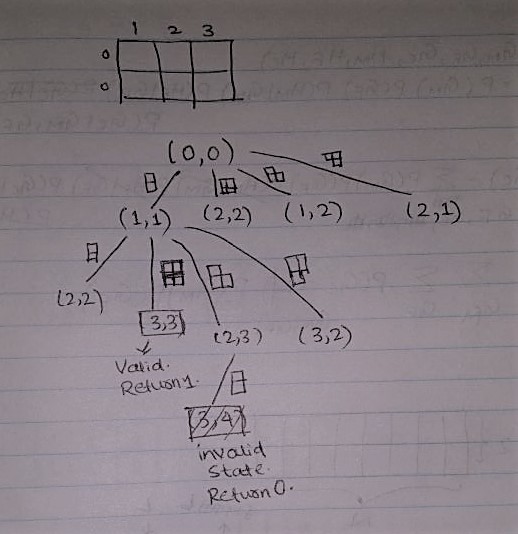 1 2 3
0
0
(0,0)
(1,1) (2,2) (1,2) (2,1)
(2,2) (3,3) (2,3) (3,2)
Valid.
Return 1.
(3,4)
invalid
State.
Return 0.